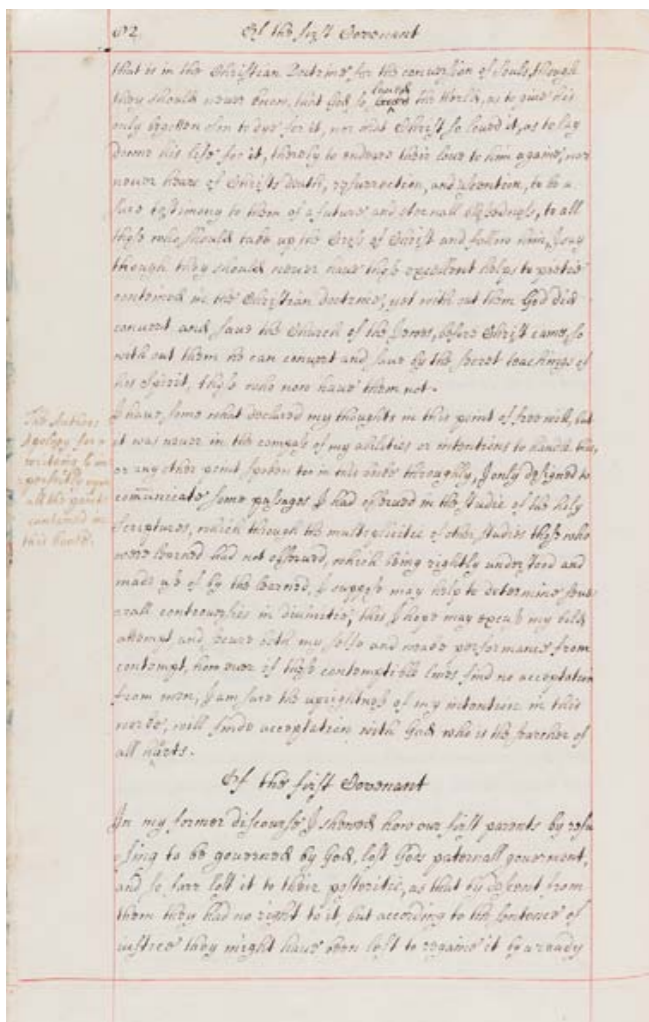 92 Of the first Covenant
that is in the Christian Doctrine for the convertion of souls, though
they should never know, that God so loved the World, as to give his
only begotten Son to dye for it, nor that Christ so loved it, as to lay
downe his life for it, thereby to endeare their love to him againe, nor
never heare of Christs death, resurrection, and assention, to be a
sure testimony to them of a future and eternall blessednesse, to all
those who should take up the Cross of Christ and follow him, I say
though they should never have these excellent helps to
contained in the Christian doctrine, yet with out them God did
convert and save the Church of the Jewes, before Christ came, so
with out them he can convert and save by the secret teachings of
his Spirit, those who now have them not.
I have some what declared my thoughts in this point of free will, but
it was never in the compass of my abilities or intentions to handle this,
or any other point spoken too in this throughly, I only designed to
communicate some passages I had observed in the studie of the holy
Scriptures, which through the multeplicitie of other studies those who
were learned had not observed, which being rightly understood and
made use of by the learned, I suppose may help to determine seve
rall controversies in divinitie, this I hope may excuse my bold
attempt, and secure both my selfe and weake performance from
contempt, how ever if these contemptible lines find no acceptation
from men, I am sure the uprightness of my intention in this
worke, will finde acceptation with God who is the searcher of
all harts.
The Authors
Apology for
perfectly upon
all the points
contained in
this booke.
Of the first Covenant
In my former discourse I shewed how our first parents by refu
sing to be governed by God, lost Gods paternall goverment,
and so farr lost it to their posteritie, as that by descent from
them they had no right to it, but according to the sentence of
justice they might have been left to regaine it by a ready